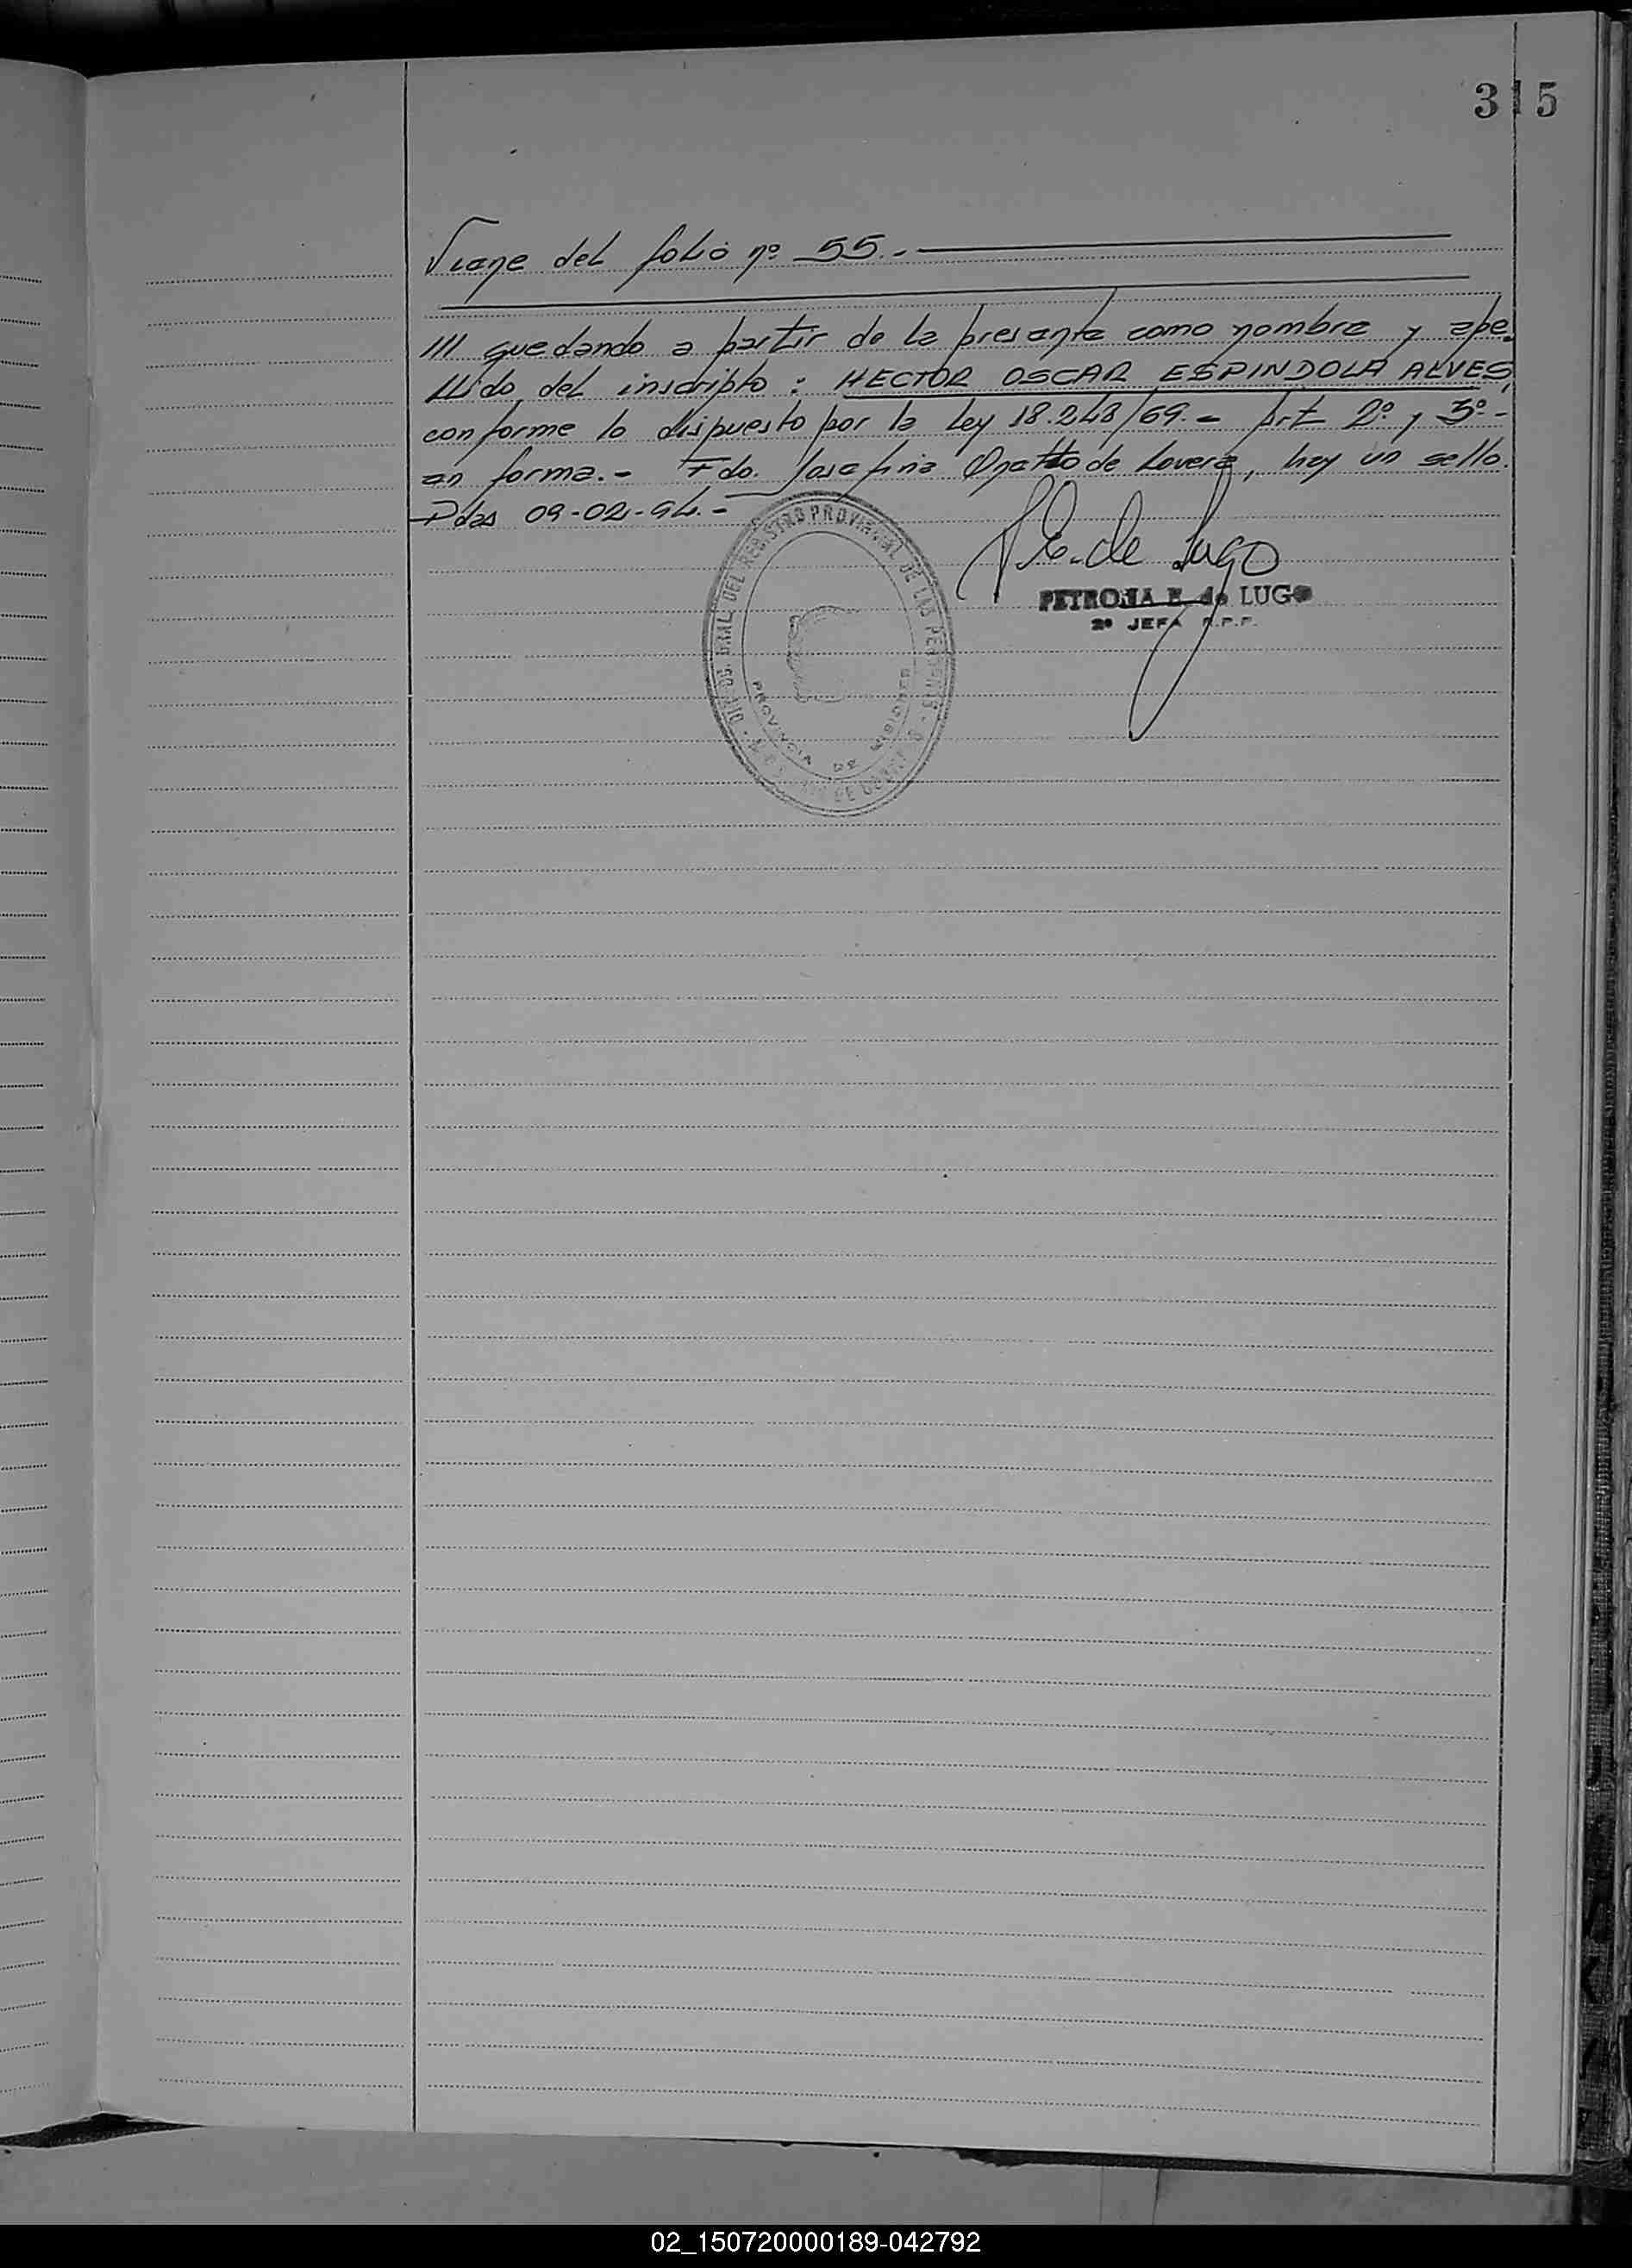 315
Viene del folio nº 55.-
/// quedando a partir de la presente como nombre y ape-
llido del inscripto: HECTOR OSCAR ESPINDOLA ALVES,
conforme lo dispuesto por la Ley 18.248/69.- Art 2º y 3º-
en forma.- Fdo. Josefina Onetto de Lovera, hay un sello.
Pdas 09-02-94.-
P.E. de Lugo
PETRONA E. de LUGO
2º JEFA R.P.P.
DIREC. GRAL. DEL REGISTRO PROVINCIAL DE LAS PERSONAS
PROVINCIA DE MISIONES
02_150720000189-042792